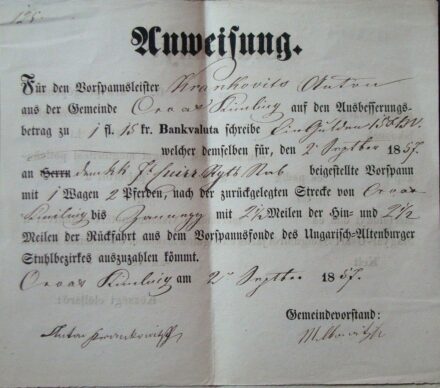 Anweisung.
Für den Vorspannsleister Krankovits Anton
aus der Gemeinde Oroar auf den Ausbesserungs-
betrag zu 1 fl. 15 kr. Bankvaluta schreibe Ein Gulden 15
welcher demselben für, den 2 Septber 1857.
an Herrn dem kk Rgts Stab beigestellte Vorspann
mit 1 Wagen 2 Pferden, nach der zurückgelegten Strecke von Oroar
bis mit 2½ Meilen der Hin- und 2½
Meilen der Rückfahrt aus dem Vorspannsfonde des Ungarisch-Altenburger
Stuhlbezirkes auszuzahlen kömmt.
Oroar am 2 Septber 1857.
Gemeindevorstand:
Anton